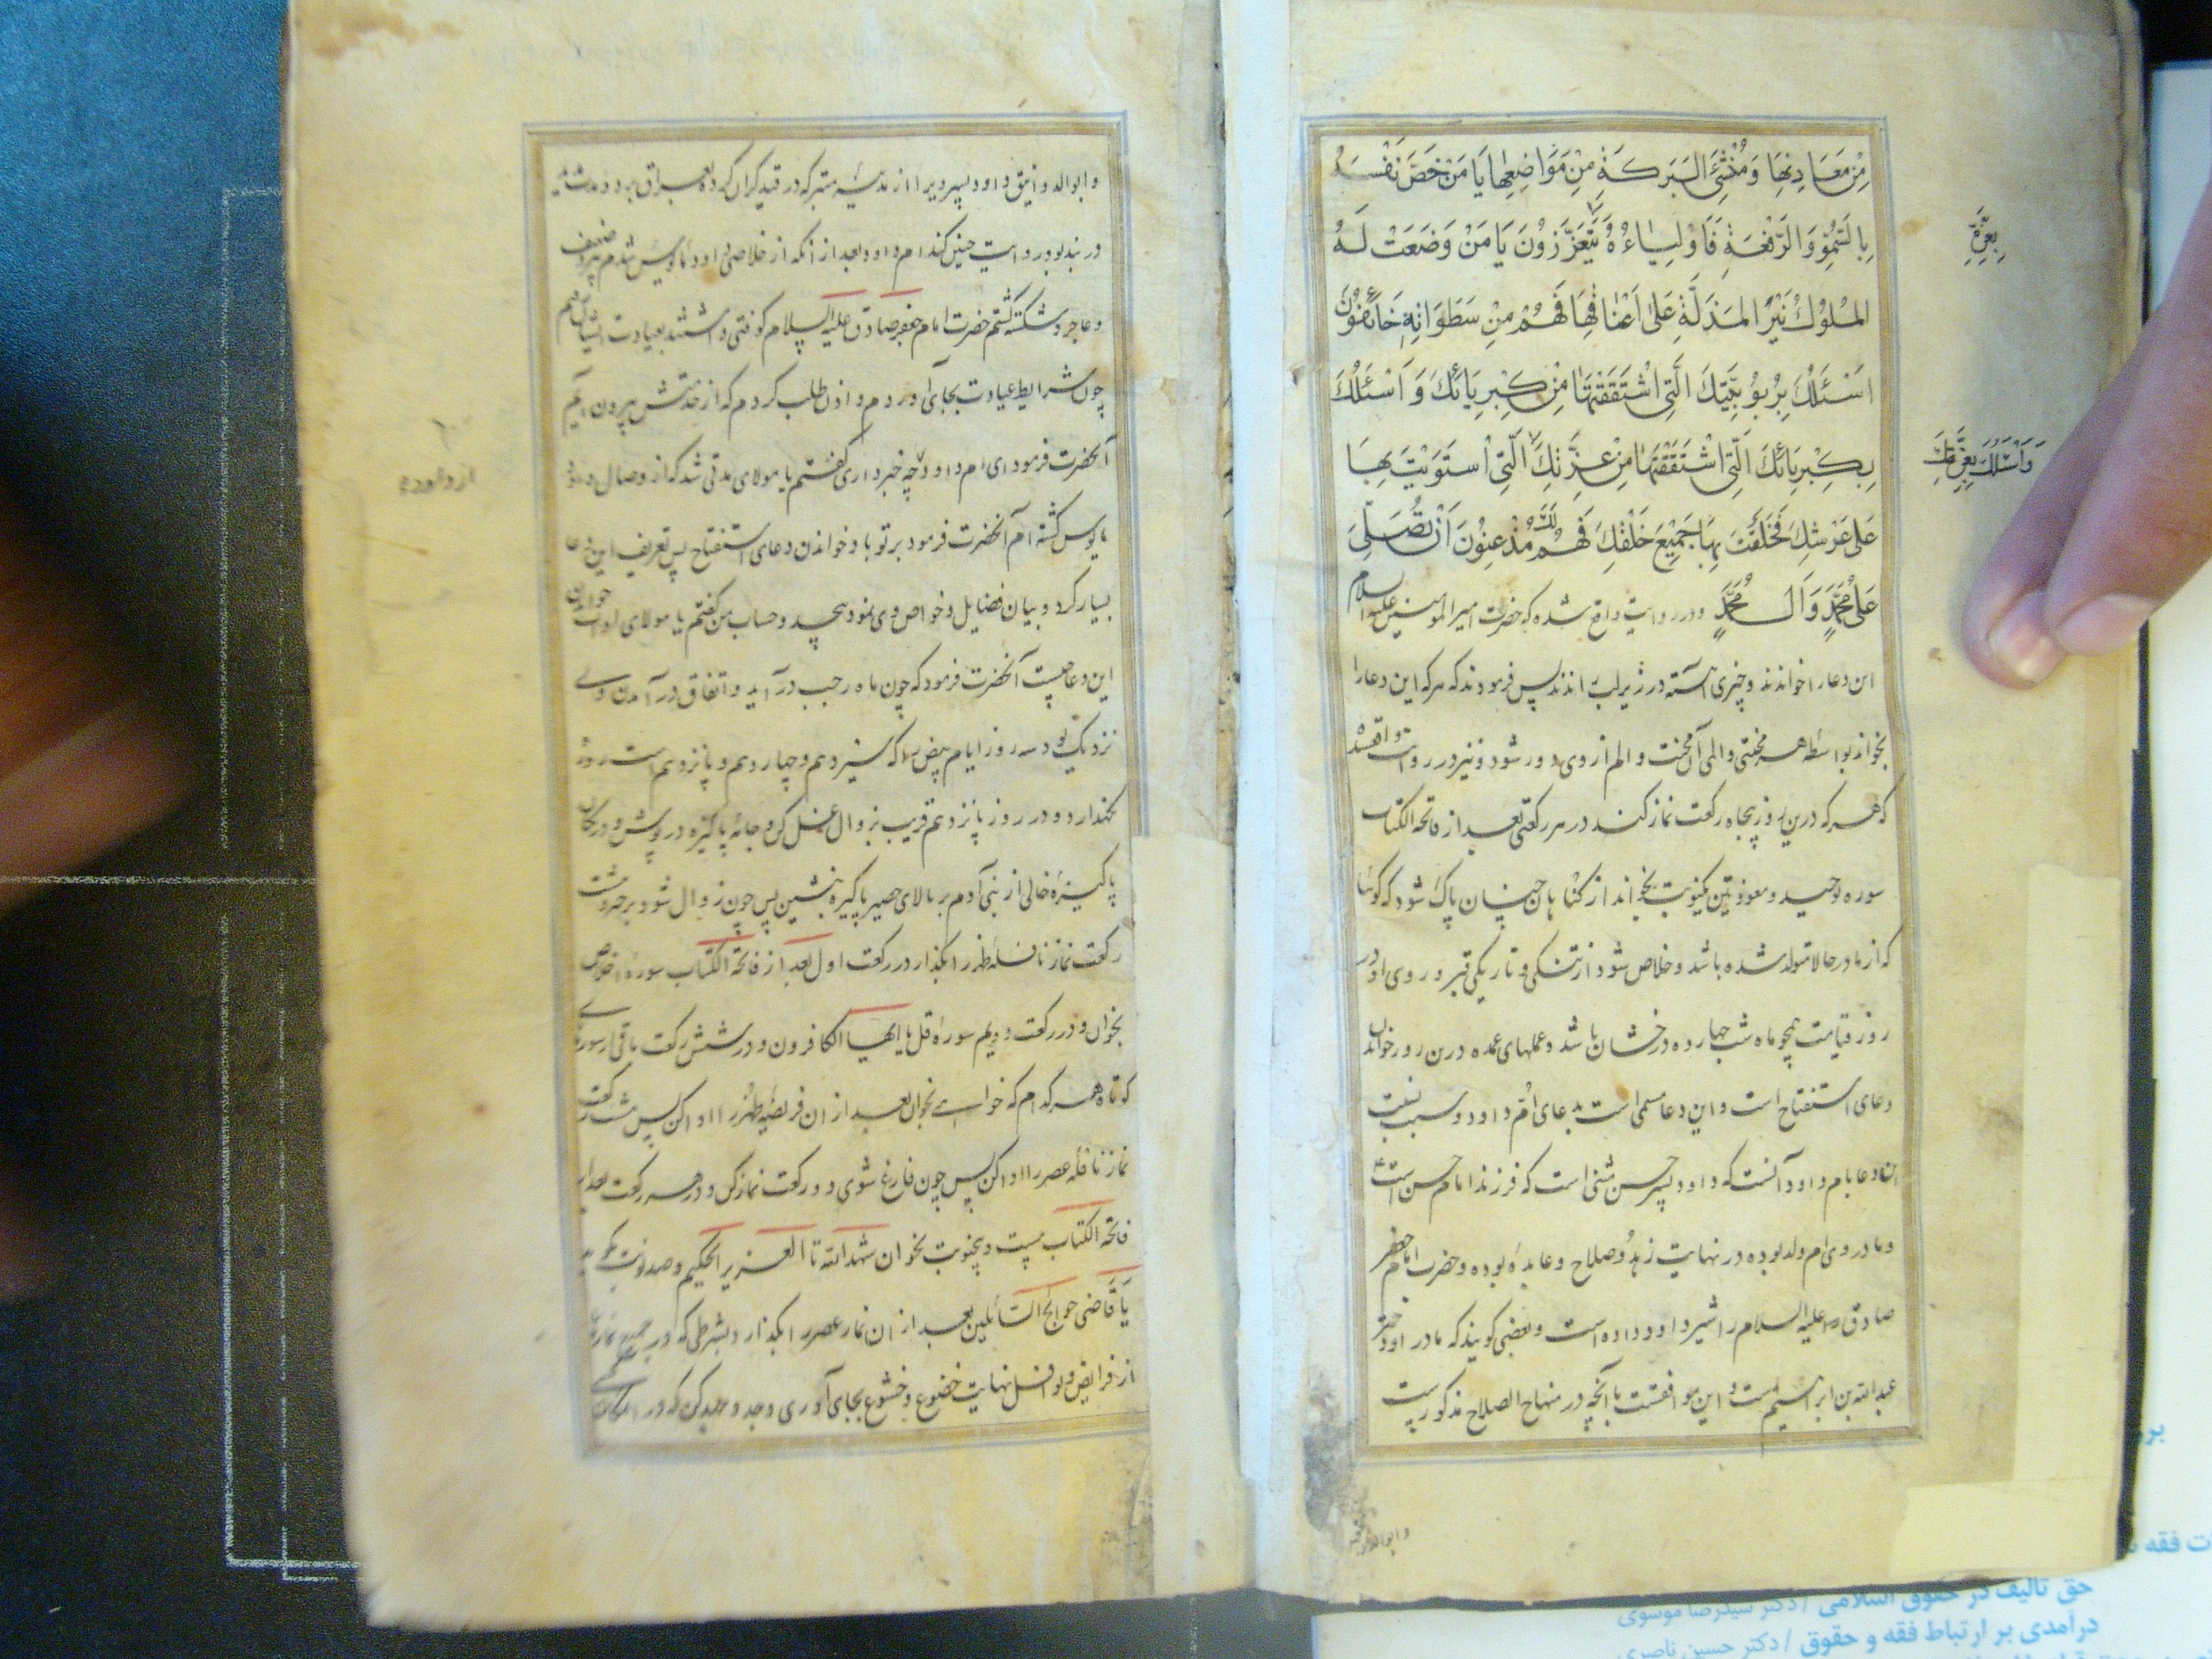 مِنْ مَعَادِنِهَا وَمُنْشِئَ الْبَرَكَةِ مِنْ مَوَاضِعِهَا يَا مَنْ خَصَّ نَفْسَهُ
بِالسُّمُوِّ وَالرِّفْعَةِ فَاَوْلِيَاءُهُ يَتَعَزَّزُوْنَ يَا مَنْ وَضَعَتْ لَهُ
بِعِزِّهِ
الْمُلُوْكُ نِيْرَ الْمَذَلَّةِ عَلٰى اَعْنَاقِهَا فَهُمْ مِنْ سَطَوَاتِهِ خَائِفُوْنَ
اَسْئَلُكَ بِرُبُوْبِيَّتِكَ الَّتِى اشْتَقَقْتَهَا مِنْ كِبْرِيَائِكَ وَاَسْئَلُكَ
بِكِبْرِيَائِكَ الَّتِى اشْتَقَقْتَهَا مِنْ عِزَّتِكَ الَّتِى اسْتَوَيْتَ بِهَا
وَاَسْئَلُكَ بِعِزَّتِكَ
عَلٰى عَرْشِكَ فَخَلَقْتَ بِهَا جَمِيْعَ خَلْقِكَ فَهُمْ لَكَ مُذْعِنُوْنَ اَنْ تُصَلِّىَ
عَلٰى مُحَمَّدٍ وَاٰلِ مُحَمَّدٍ ودر روایت واقع شده که حضرت امیرالمومنین علیه السلام
این دعا را خواندند و چیزی آهسته در زیر لب راندند پس فرمودند که هر که این دعا را
بخواند بواسطه هر محنتی و المی آن محنت و الم از وی دور شود و نیز در روایت واقعست
که هر که درین روز پنجاه رکعت نماز کند در هر رکعتی بعد از فاتحة الکتاب
سوره توحید و معوذتین یکنوبت بخواند از کناهان چنان پاک شود که کوئیا
که از مادر حالا متولد شده باشد و خلاص شود از تنکی و تاریکی قبر و روی او در
روز قیامت همچو ماه شب چهارده درخشان باشد و عملهای عمده درین روز خواندن
دعای استفتاح است و این دعا مسمی است بدعای ام داود و سبب نسبت
این دعا بام داود آنست که داود پسر حسن مثنی است که فرزند امام حسن است
و مادر وی ام ولد بوده در نهایت زهد و صلاح و عابده بوده و حضرت امام جعفر
صادق علیه السلام را شیر داود داده است و بعضی کویند که مادر او دختر
عبدالله بن ابراهیم است و این موافقست بانچه در منهاج الصلاح مذکورست
و ابوالدوانیق
و ابوالدوانیق داود پسر ویرا از مدینه متبرکه در قید کران کرده بعراق برد و مدتها
در بند بود و روایت چنین کند ام داود بعد از انکه از خلاصی داود مایوس شدم پیر و ضعیف
و عاجز و شکسته کشتم حضرت امام جعفر صادق علیه السلام کوفتی داشتند بعیادت ایشان رفتم
چون شرایط عیادت بجای آوردم و اذن طلب کردم که از خدمتش بیرون آیم
آنحضرت فرمود ای ام داود از داود چه خبر داری کفتم یا مولای مدتی شد که از وصال داود
از داود
مایوس کشته ام آنحضرت فرمود بر تو باد خواندن دعای استفتاح پس تعریف این دعا
بسیار کرد و بیان فضایل و خواص وی نمود بیحد و حساب من کفتم یا مولای اوقات خواندن
این دعا چیست آنحضرت فرمود که چون ماه رجب در آید و اتفاق در آمدن وے
نزدیک بود سه روز ایام بیض را که سیزدهم و چهاردهم و پانزدهم است روزه
نکهدار و در روز پانزدهم قریب بزوال غسل کن و جامه پاکیزه در پوش و در مکان
پاکیزه خالی از بنی آدم بر بالای حصیر پاکیزه بنشین پس چون زوال شود برخیز و هشت
رکعت نماز نافله ظهر را بکذار در رکعت اول بعد از فاتحة الکتاب سوره اخلاص
بخوان و در رکعت دویم سوره قل یا ایها الکافرون و در شش رکعت باقی از سورهای
کوتاه هر کدام که خواهے بخوان بعد از ان فریضه ظهر را ادا کن پس هشت رکعت
نماز نافله عصر را ادا کن پس چون فارغ شوی دو رکعت نماز کن و در هر رکعت بعد از
فاتحة الکتاب بیست و پنج نوبت بخوان شهد الله تا العزیز الحکیم و صد نوبت بکو
یَا قَاضی حوائج السّائلین بعد از ان نماز عصر را بکذار بشرطی که در جمیع نمازها
از فرایض و نوافل نهایت خضوع و خشوع بجای آوری و جد و جهد کن که در